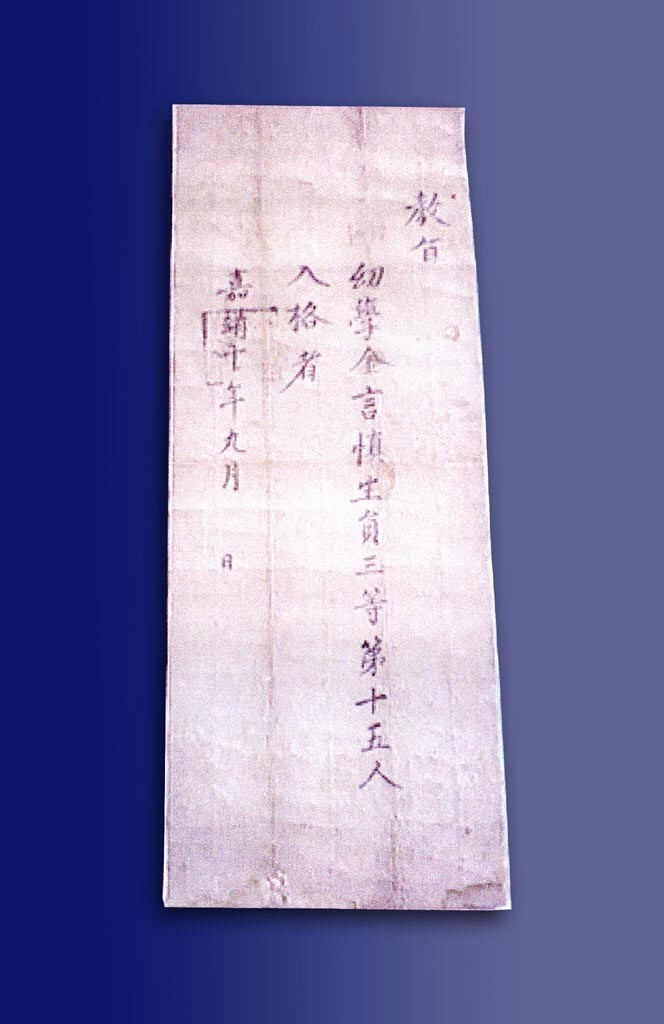 教旨
幼學金言慎生員三等第十五人
入格者
嘉靖十年九月 日